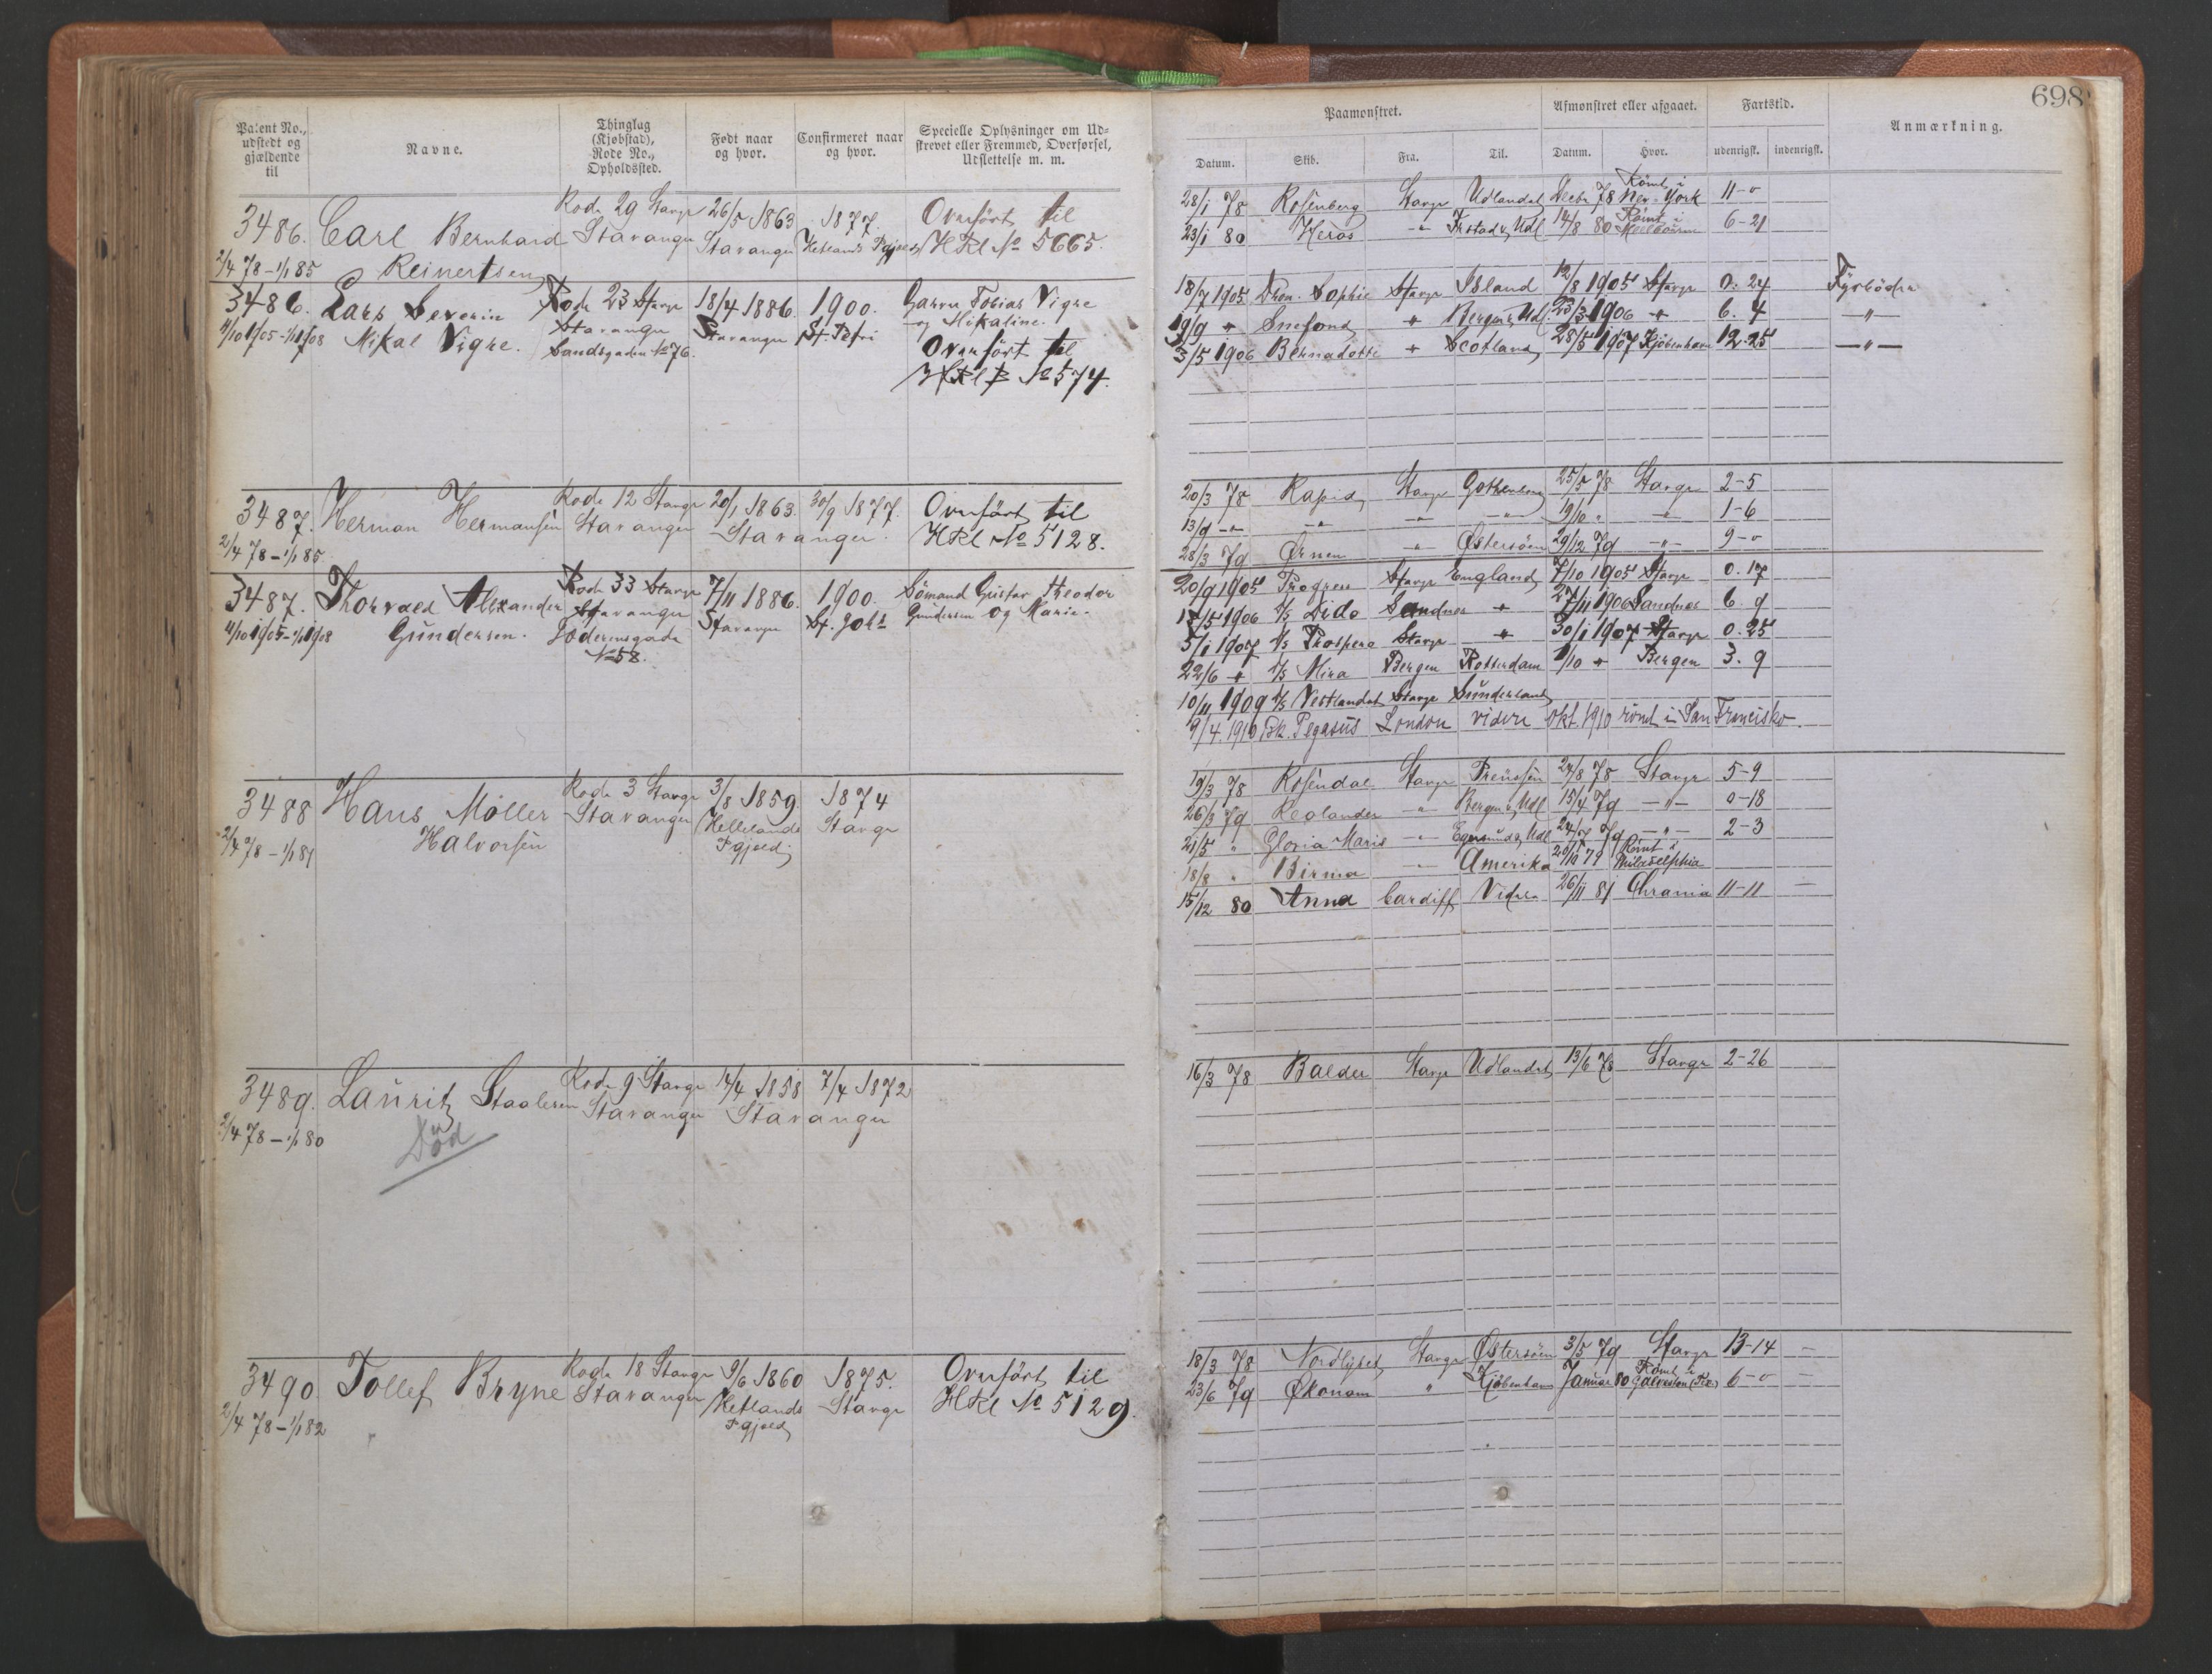 698
Patent No., udstedt og gjældende til | Navne. | Thinglag (Kjøbstad), Rode No., Opholdssted. | Født naar og hvor. | Confirmeret naar og hvor. | Specielle Oplysninger om Udskrevet eller Fremmed, Overførsel, Udslettelse m. m.
Paamønstret. | Afmønstret eller afgaaet. | Fartstid. | Anmærkning.
Datum. | Skib. | Fra. | Til. | Datum. | Hvor. | udenrigsk. | indenrigsk.
3486. Carl Bernhard Reinertsen | Rode 29 Stavgr Stavanger | 26/5 1863 Stavanger | 1877. Hetlands Pgjæld | Overført til HRl No 5665.
2/4 78 – 1/1 85
28/1 78 Rosenberg Stavgr Udlandet Decbr 78 Rømt i New-York 11-0
23/1 80 Heros -"- Frstad & Udl 14/8 80 Rømt i Melbourne 6-21
3486. Lars Severin Mikal Vigre. | Rode 23 Stavgr Stavanger Sandsgaden No 76. | 18/4 1886. Stavanger | 1900. St. Petri | Garver Tobias Vigre og Mikaline. Overført til HRl B No 574.
11/10 1905 – 1/1 1908
18/7 1905 Dron. Sophie Stavgr Island 12/8 1905 Stavgr 0. 24 Fyrbøder
19/9 " Snefond " Bergen & Udl. 23/3 1906 " 6. 4 -"-
3/5 1906 Bernadotte " Scotland 28/5 1907 Kjøbenhavn 12-25 -"-
3487. Herman Hermansen | Rode 12 Stavgr Stavanger | 20/1 1863. | 30/9 1877. Stavanger. | Overført til HRl No 5128.
2/4 78 – 1/1 85
20/3 78 Rapid Stavgr Gothenborg 25/5 78 Stavgr 2-5
13/9 -"- -"- -"- -"- 19/10 " -"- 1-6
28/3 79 Ørnen -"- Østersøen 29/12 79 -"- 9-0
3487. Thorvald Alexander Gundersen. | Rode 33 Stavgr Stavanger Jøderensgade No 58. | 7/11 1886. Stavanger | 1900. St. Johs | Sømand Gustav Theodor Gundersen og Marie.
11/10 1905 – 1/1 1908
20/9 1905 Progress Stavgr England 7/10 1905 Stavgr 0. 17
18/5 1906 D/S Dido Sandnes " 27/11 1906 Sandnes 6. 9
5/1 1907 D/S Prospero Stavgr " 30/1 1907 Stavgr 0. 25
22/6 " D/S Mira Bergen Rotterdam 1/10 " Bergen 3. 9
10/11 1909 D/S Vestlandet Stavgr Sunderland
9/4. 1910 Bk. Pegasus London videre Okt. 1910 rømt i San Francisko.
3488 Hans Møller Halvorsen | Rode 3 Stavgr Stavanger | 3/8 1859. Hellelands Pgjæld | 1874 Stavgr
2/4 78 – 1/1 81
19/3 78 Rosendal Stavgr Preussen 27/8 78 Stavgr 5-9
26/3 79 Reolander -"- Bergen & Udl 15/4 79 -"- 0-18
21/5 " Gloria Maris -"- Egersund & Udl 24/7 79 -"- 2-3
18/8 " Birma -"- Amerika 20/10 79 Rømt i Philadelphia
15/12 80 Anna Cardiff Videre 26/11 81 Chrania 11-11 –
3489. Lauritz Staalesen | Rode 9 Stavgr Stavanger | 14/4 1858 | 7/4 1872 Stavanger
2/4 78 – 1/1 80
Død
16/3 78 Balder Stavgr Udlandet 13/6 78 Stavgr 2-26
3490 Tollef Bryne | Rode 18 Stavgr Stavanger | 9/6 1860 Hetlands Pgjæld | 1875. Stavgr | Overført til HRl No 5129.
2/4 78 – 1/1 82
18/3 78 Nordlyset Stavgr Østersøen 3/5 79 Stavgr 13-14 –
23/6 79 Økonom " Kjøbenhavn Januar 80 Rømt i Galveston (Tex) 6-0 –